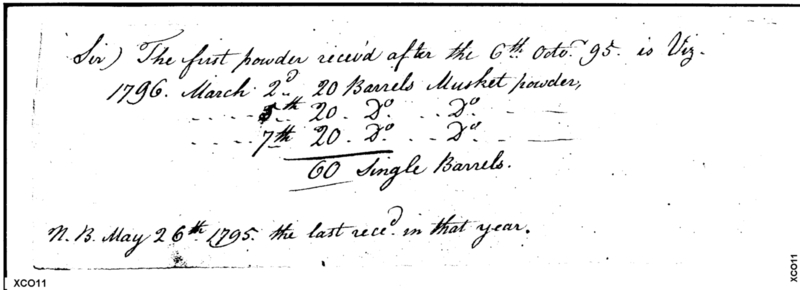 Sir) The first powder receiv'd after the 6th Octo.r 95. is Viz.
1796. March 2.d 20 Barrels Musket powder,
5th 20. Do. .. Do.
7th 20. Do. .. Do.
60 Single Barrels.
N.B. May 26th 1795. the last rece.d in that year.
XCO11
XCO11